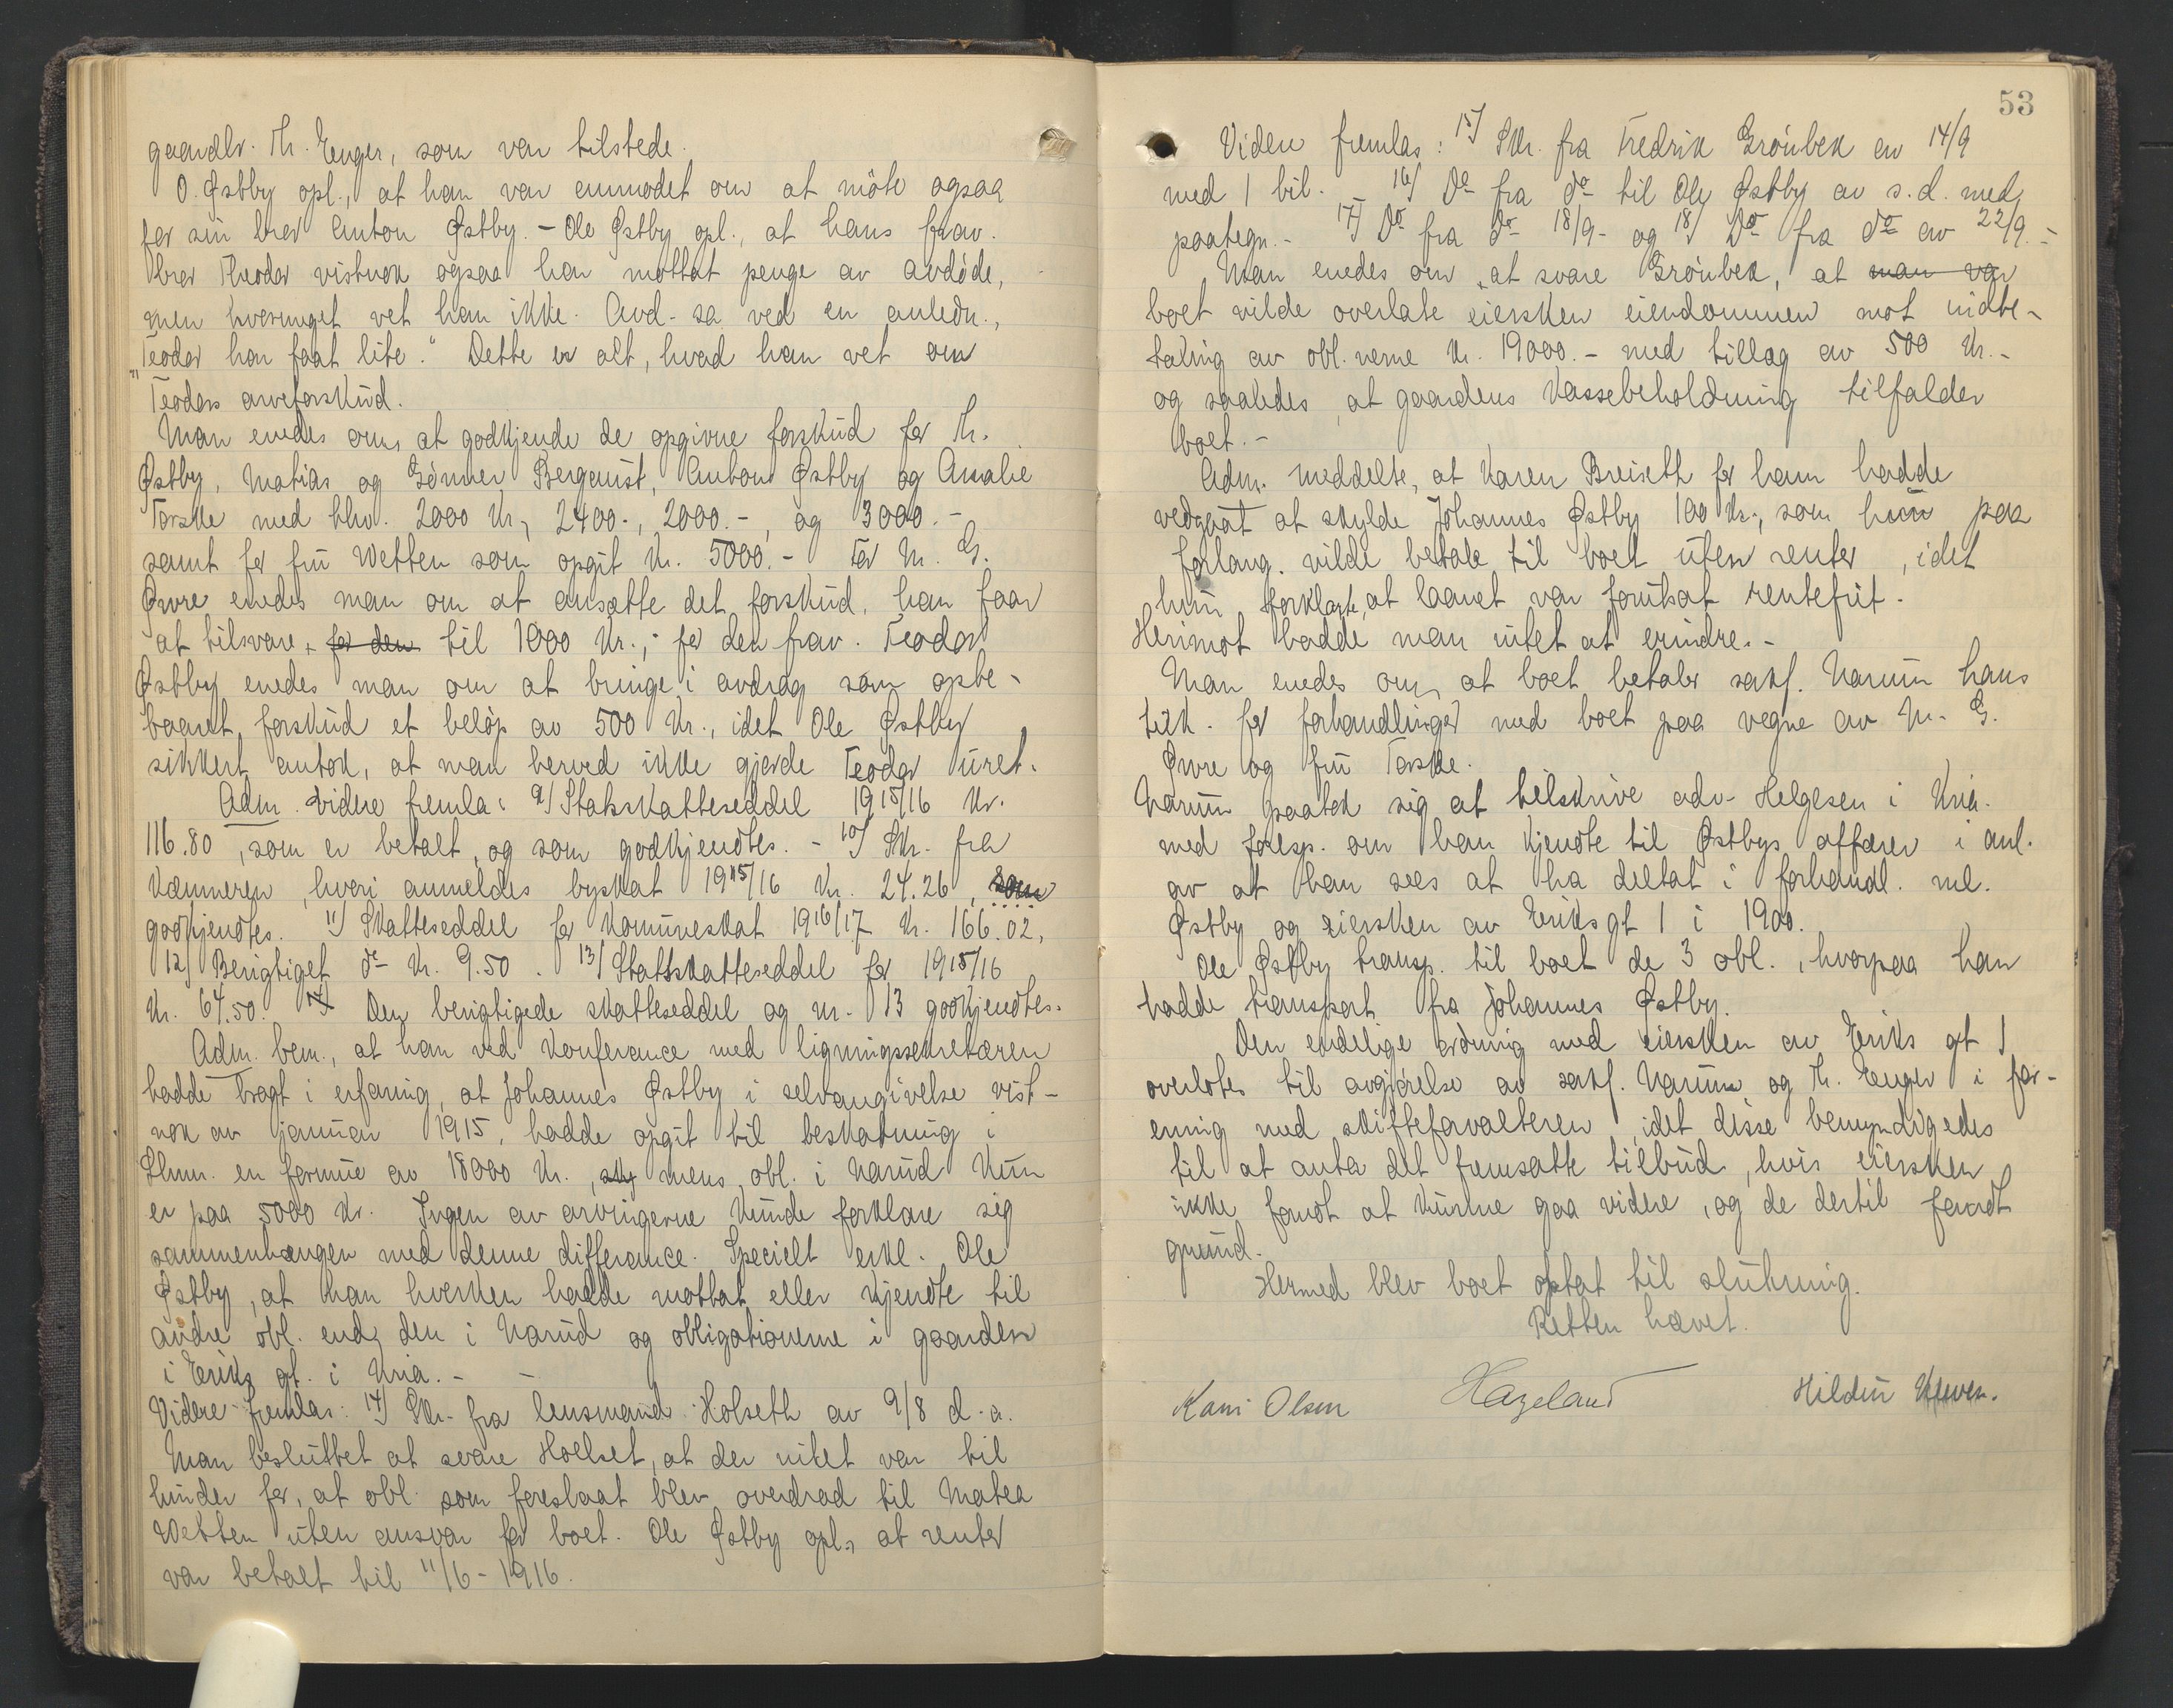 gaardbr. Kr. Enger, som var tilstede.
O. Østby opl., at han var anmodet om at möte ogsaa
for sin bror Anton Østby. - Ole Østby opl., at hans frav.
bror Theodor vistnok ogsaa har mottat penge av avdöde,
men hvormeget vet han ikke. Avd. sa ved en anledn.,
"Teodor har faat lite." Dette er alt, hvad han vet om
Teodors arveforskud.
Man enedes om, at godkjende de opgivne forskud for Kr.
Østby, Matias og Bergquist, Anton Østby og Amalie
Torske med bhv. 2000 kr., 2400.-, 2000.-, og 3000.-
samt for fru Wetten som opgit kr. 5000.- For M. G.
Øvre enedes man om at ansætte det forskud, han faar
at tilsvare, for den til 1000 kr.; for den frav. Teodor
Østby enedes man om at bringe i avdrag som opbe-
baaret forskud et belöp av 500 kr., idet Ole Østby
sikkert antok, at man herved ikke gjorde Teodor uret.
Adm. videre fremla: 9/ Statsskatteseddel 1915/16 kr.
116.80, som er betalt, og som godkjendtes. - 10/ Skr. fra
Kæmneren, hvori anmeldes byskat 1915/16 kr. 24.26, som
godkjendtes. 11/ Skatteseddel for Komuneskat 1916/17 kr. 166.02,
12/ Berigtiget do kr. 9.50. 13/ Stattskatteseddel for 1915/16
kr. 64.50. 14/ Den berigtigede skatteseddel og nr. 13 godkjendtes.
Adm. bem., at han ved konferance med ligningssekretæren
hadde bragt i erfaring, at Johannes Østby i selvangivelse vist-
nok av januar 1915, hadde opgit til beskatning i
Lhmr. en formue av 18000 kr., mens obl. i Narud kun
er paa 5000 kr. Ingen av arvingerne kunde forklare sig
sammenhængen med denne differance. Specielt erkl. Ole
Østby, at han hverken hadde mottat eller kjendte til
andre obl. end den i Narud og obligationerne i gaarden
i Eriks gt. i Kria. -
Videre fremlas: 14/ Skr. fra lensmand Holseth av 9/8 d.a.
Man besluttet at svare Hoelset, at der intet var til
hinder for, at obl. som foreslaat blev overdrad til Matea
Wetten uten ansvar for boet. Ole Østby opl., at renter
var betalt til 11/6 - 1916.
53
Videre fremlas: 15/ Skr. fra Fredrik Grönbek av 14/9
med 1 bil. 16/ Do fra do til Ole Østby av s.d. med
paategn. - 17/ Do fra do 18/9 - og 18/ Do fra do av 22/9. -
Man enedes om, at svare Grönbek, at man var
boet vilde overlate eiersken eiendommen mot indbe-
taling av obl.nerne kr. 19000.- med tillæg av 500 kr. -
og saaledes, at gaardens kassebeholdning tilfalder
boet. -
Adm. meddelte, at Karen Breiseth for ham hadde
vedgaat at skylde Johannes Østby 100 kr., som hun paa
forlang. vilde betale til boet uten renter, idet
hun forklarte, at laanet var forutsat rentefrit.
Herimot hadde man intet at erindre. -
Man enedes om, at boet betaler sakf. Narum hans
tilk. for forhandlinger med boet paa vegne av M. G.
Øvre og fru Torske.
Narum paatok sig at tilskrive adv. Helgesen i Kria.
med foresp. om han kjendte til Østbys affærer i anl.
av at han sees at ha deltat i forhandl. ml.
Østby og eiersken av Eriksgt 1 i 1900.
Ole Østby transp. til boet de 3 obl., hvorpaa han
hadde transport fra Johannes Østby.
Den endelige ordning med eiersken av Eriks gt 1
overlotes til avgjörelse av sakf. Narum og Kr. Enger i for-
ening med skifteforvalteren, idet disse bemyndigedes
til at anta det fremsatte tilbud, hvis eiersken
ikke fandt at kunne gaa videre, og de dertil fandt
grund.
Hermed blev boet optat til slutning.
Retten hævet.
Kari Olsen Hazeland Hildur Kleven.